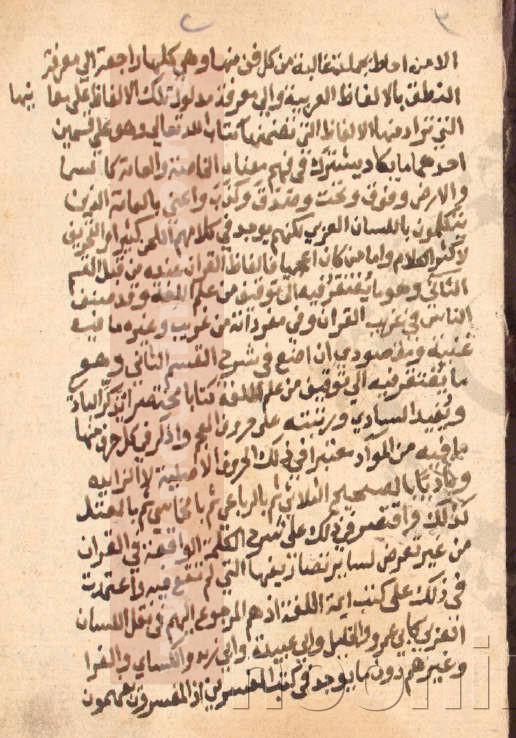 الا من احاط بجملة غالبة من كل فن منها وهي كلها راجعة الي معرفة
النطق بالالفاظ العربية والي معرفة مدلول تلك الالفاظ علي معانيها
التي تراد منها والالفاظ التي تضمنها كتاب الله تعالي وهو علي قسمين
احدهما ما يكاد يشترك في فهم معناه الخاصة والعامة كالسما
والارض وفوق وتحت وصدق وكذب واعني بالعامة الذين
يتكلمون باللسان العربي لكنهم يوجد في كلامهم اللحن كثيرا والتحريف
لاكثر الكلام واما من كان اعجميا فالفاظ القران عنده من قبيل القسم
الثاني وهو ما يفتقر فيه الي توقيف من علم اللغة وقد صنف
الناس في غريب القران وفي مفرداته من غريب وغيره ما فيه
غنية ومقصودي ان اضع في شرح القسم الثاني وهو
ما يفتقر فيه الي توقيف من علم اللغة كتابا مختصرا يذكر البادي
ويفيد الشادي ورتبته علي حروف المعجم واذكر في كل حرف منها
ما فيه من المواد معتبرا في ذلك الحروف الاصلية لا الزايدة
وباديا بالصحيح الثلاثي ثم بالرباعي ثم بالخماسي ثم بالمعتل
كذلك واقتصر في ذلك علي شرح الكلمة الواقعة في القران
من غير تعرض لساير تصاريفها التي لم تقع فيه واعتمدت
في ذلك علي كتب ايمة اللغة اذ هم المرجوع اليهم في نقل اللسان
العربي كابي عمرو والخليل وابي عبيدة وابي زيد والكساي والفرا
وغيرهم دون ما يوجد في كتب المفسرين اذ المفسرون
noorlit